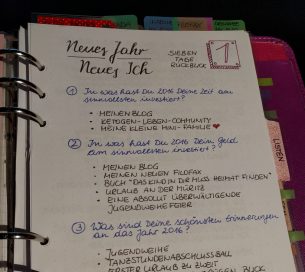 Neues Jahr
Neues Ich
SIEBEN
TAGE
RÜCKBLICK
1
① In was hast Du 2016 Deine Zeit am
sinnvollsten investiert?
• MEINEN BLOG
• KETOGEN-LEBEN-COMMUNITY
• MEINE KLEINE MINI-FAMILIE ❤
② In was hast Du 2016 Dein Geld
am sinnvollsten investiert?
• MEINEN BLOG
• MEINEN NEUEN FILOFAX
• BUCH "DAS KIND IN DIR MUSS HEIMAT FINDEN"
• URLAUB AN DER MÜRITZ
• EINE ABSOLUT ÜBERWÄLTIGENDE
JUGENDWEIHE FEIER
③ Was sind Deine schönsten Erinnerungen
an das Jahr 2016?
• JUGENDWEIHE
• TANZSTUNDENABSCHLUSSBALL
• ERSTER URLAUB ZU ZWEIT
BUCK
LISTEN